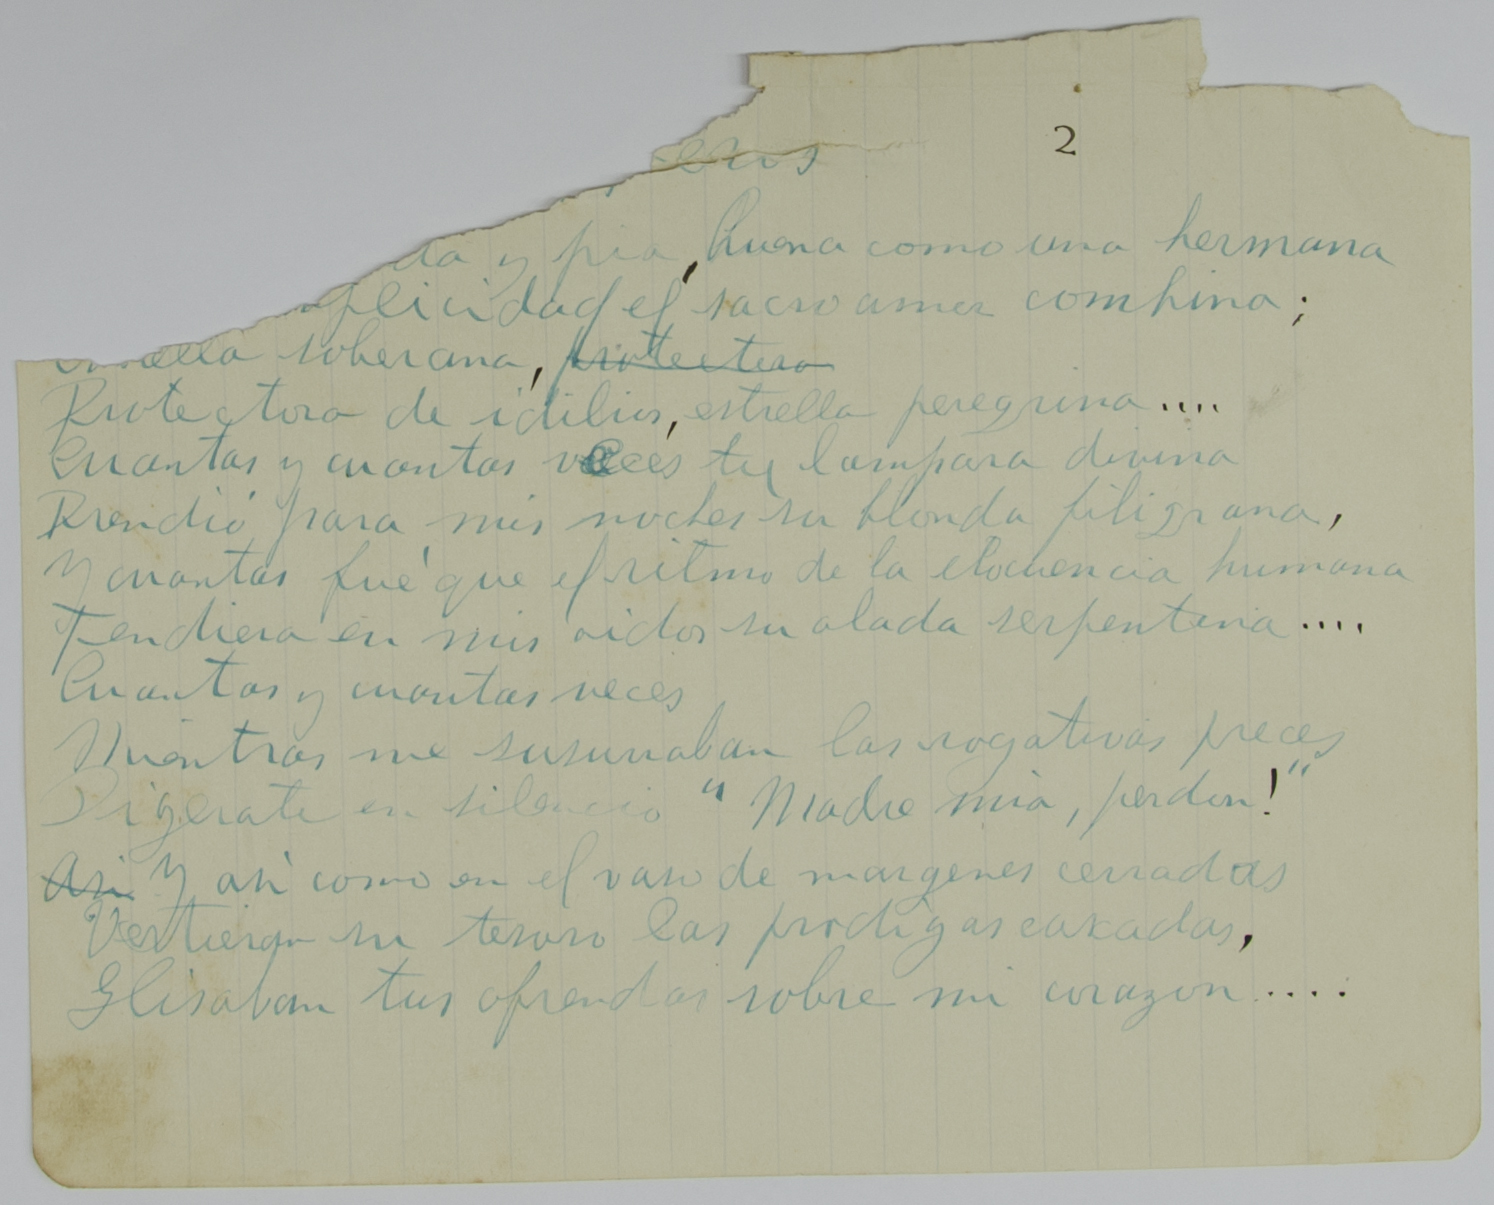 2
y pia, buena como una hermana
el sacro amor combina;
soberana, protectora
Protectora de idilios, estrella peregrina....
Cuantas y cuantas veces tu lampara divina
Prendió para mis noches su blonda filigrana,
Y cuantas fué que el ritmo de la elocuencia humana
Tendiera en mis oidos su alada serpentina....
Cuantas y cuantas veces
Mientras me susurraban las rogativas preces
en silencio "Madre mia, perdon!"
Asi Y asi como en el vaso de margenes cerradas
Vertieran su tesoro las prodigas caxadas,
Glisaban tus ofrendas sobre mi corazon....